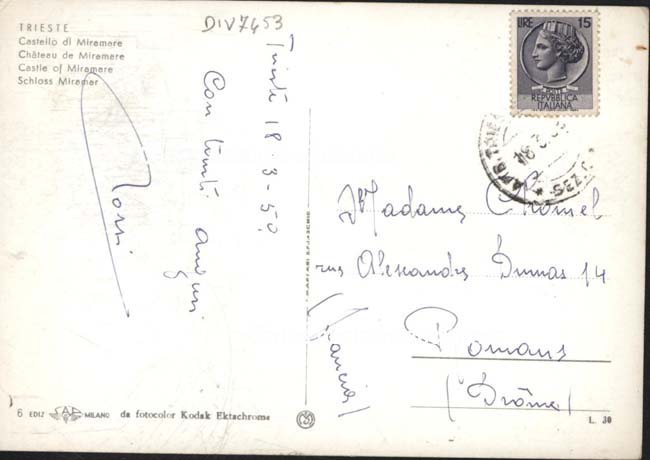 TRIESTE
Castello di Miramare
Château de Miramare
Castle of Miramare
Schloss Miramar
DIV7453
Trieste 18-3-59
Con tanti auguri
Rossi
LIRE 15
POSTE
REPVBBLICA
ITALIANA
18.3.59
Madame Chomel
rue Alexandre Dumas 14
Romans
(Drôme)
(Francia)
6 EDIZ SAF MILANO da fotocolor Kodak Ektachrome
L. 30